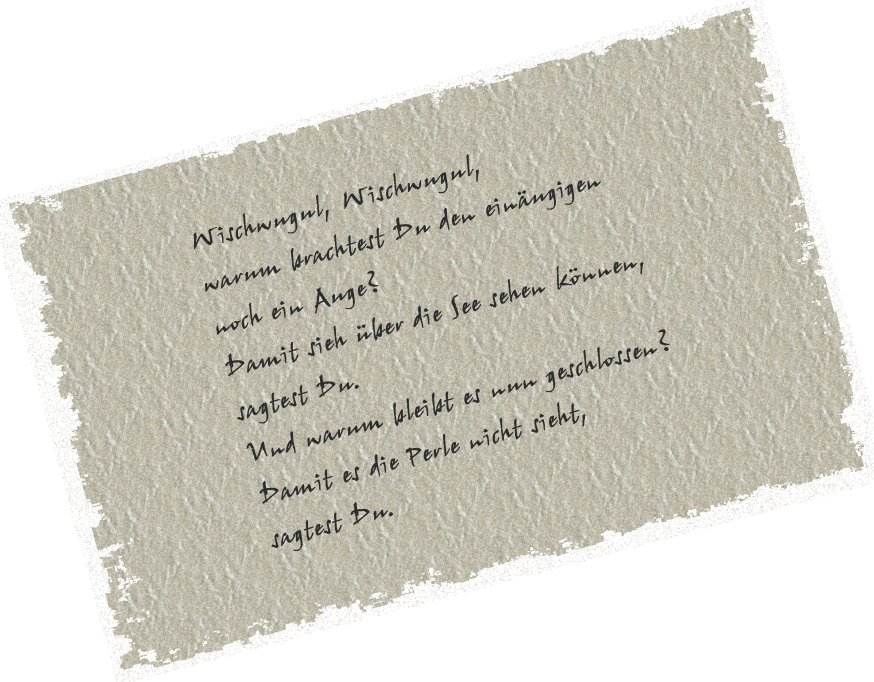 Wischwugul, Wischwugul,
warum brachtest Du den einäugigen
noch ein Auge?
Damit sieh über die See sehen können,
sagtest Du.
Und warum bleibt es nun geschlossen?
Damit es die Perle nicht sieht,
sagtest Du.